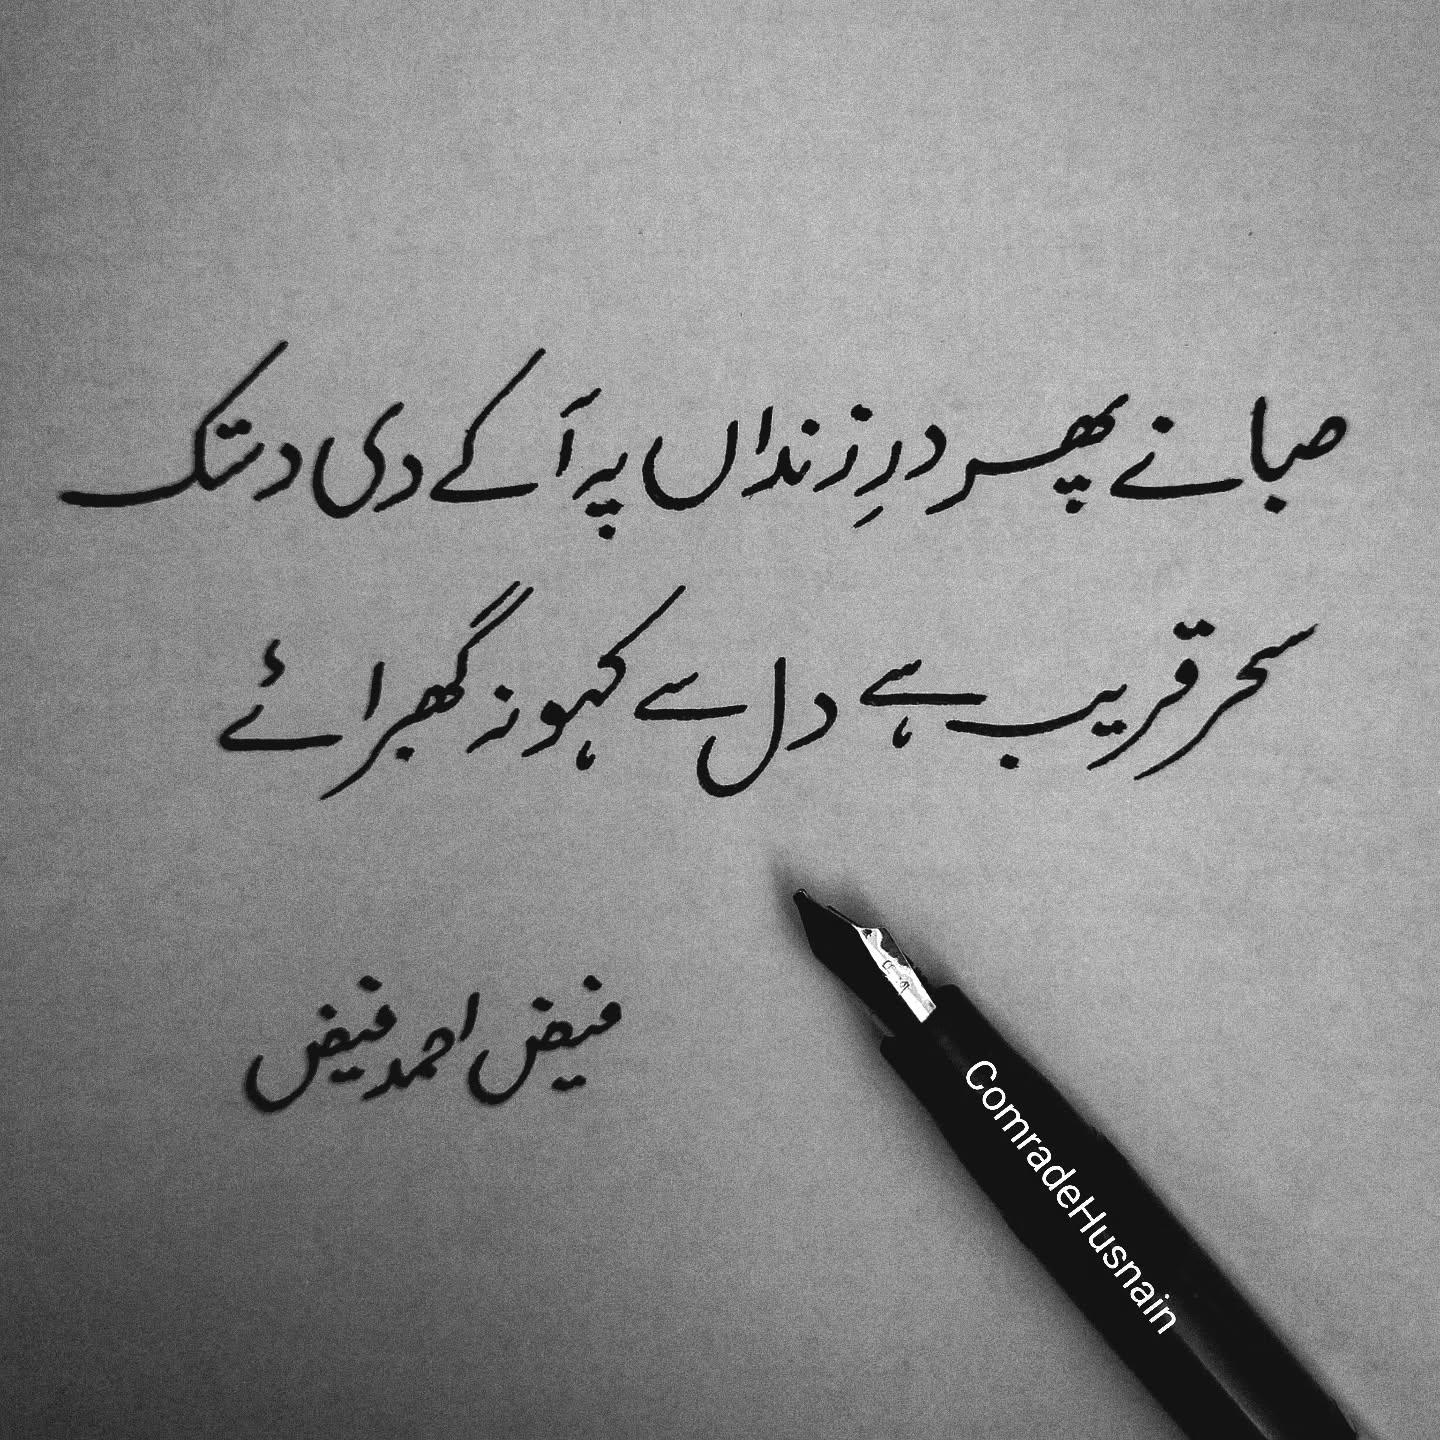 صبا نے پھر درِ زنداں پہ آ کے دی دستک
سحر قریب ہے دل سے کہو نہ گھبرائے
فیض احمد فیض
ComradeHusnain